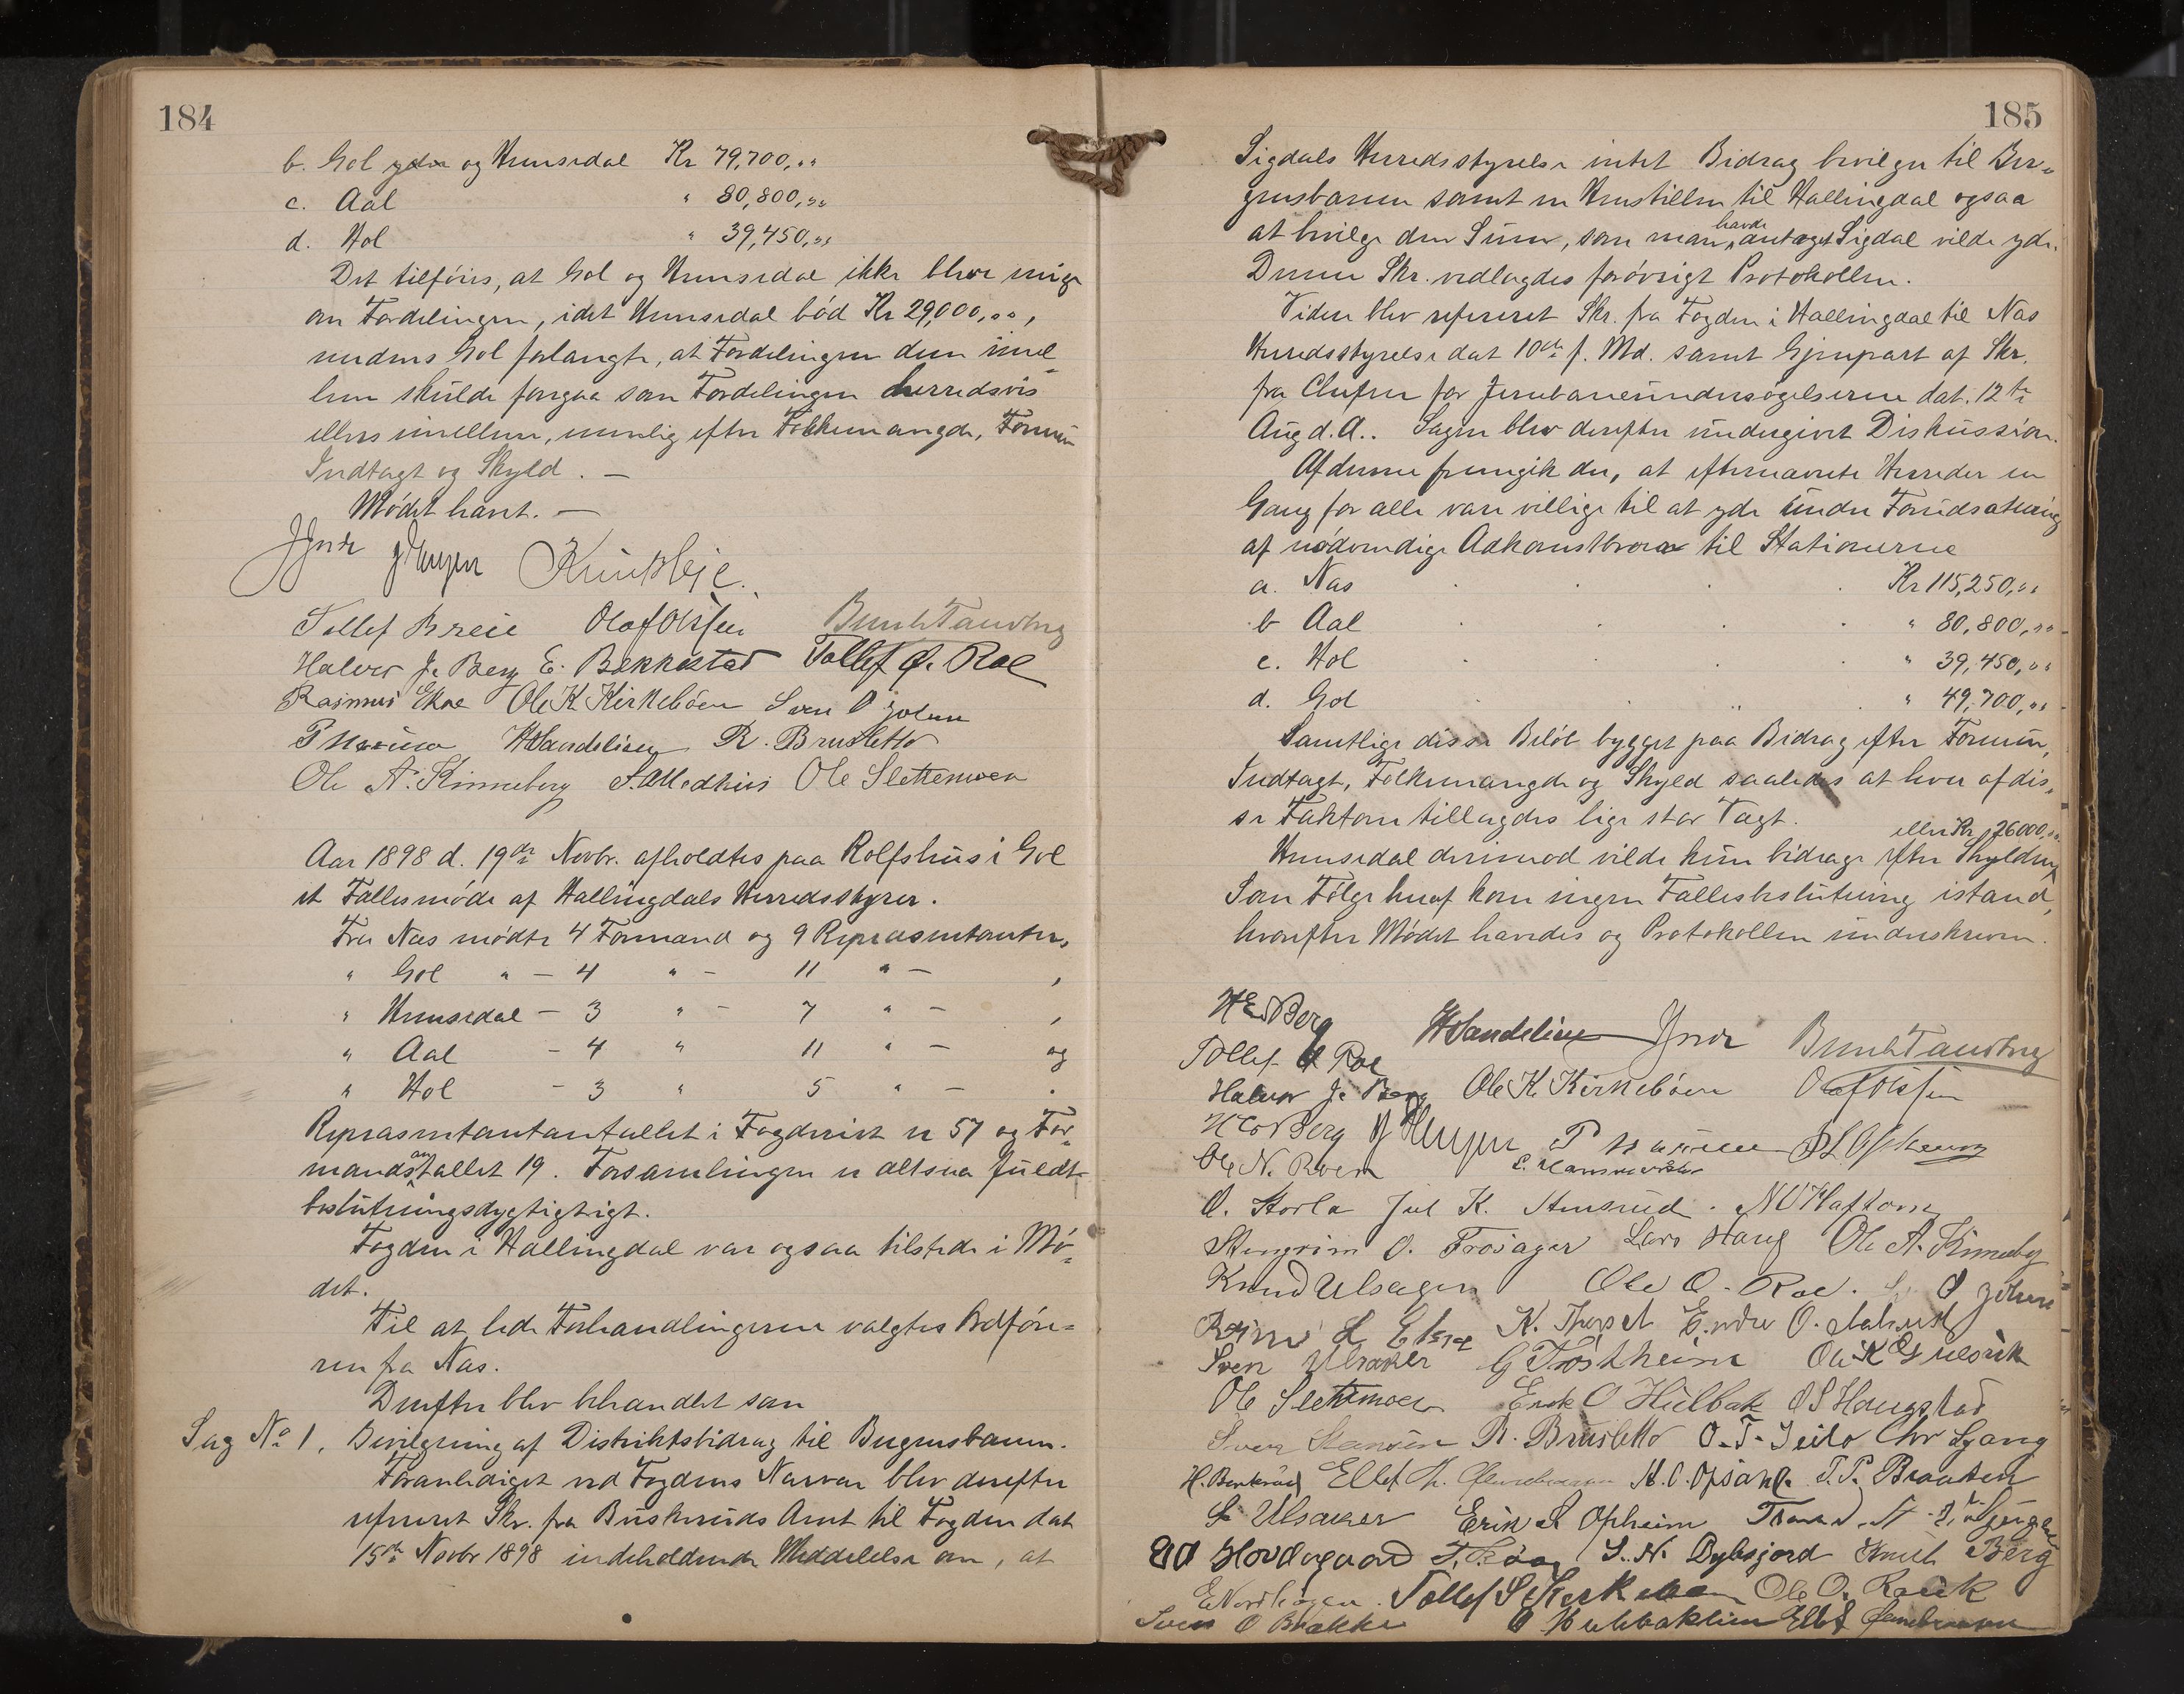 184
b. Gol yder og Hemsedal Kr 79,700,,,
c. Aal " 80,800,,,
d. Hol " 39,450,,,
Det tilføies, at Gol og Hemsedal ikke bleve enige
om Fordelingen, idet Hemsedal bød Kr 29,000,,,
medens Gol forlangte, at Fordelingen dem imel-
lem skulde foregaa som Fordelingen herredsvis
ellers imellem, nemlig efter Folkemængde, Formue
Indtægt og Skyld. —
Mødet hævet. —
Tollef Breie Olaf Olsen Bernt Tandberg
Halvor J. Berg E. Bekkestad Tollef O. Roe
Rasmus Ekre Ole K Kirkebøen Sven O Jordheim
H Sandelien R. Brusletto
Ole A. Kinneberg S. Medhus Ole Slettemoen
Aar 1898 d. 19de Novbr. afholdtes paa Rolfshus i Gol
et Fællesmøde af Hallingdals Herredsstyrer.
Fra Næs mødte 4 Formænd og 9 Repræsentanter,
" Gol " — 4 " — 11 " — ,
" Hemsedal — 3 " — 7 " — ,
" Aal — 4 " 11 " — og
" Hol — 3 " 5 " — .
Repræsentantantallet i Fogderiet er 57 og For-
mandsantallet 19. Forsamlingen er altsaa fuldt
beslutningsdygtigtigt.
Fogden i Hallingdal var ogsaa tilstede i Mø-
det.
Til at lede Forhandlingerne valgtes Ordføre-
ren fra Næs.
Derefter blev behandlet som
Sag No 1. Bevilgning af Distriktsbidrag til Bergensbanen.
Foranlediget ved Fogdens Nærvær blev derefter
refereret Skr. fra Buskeruds Amt til Fogden dat
15de Novbr 1898 indeholdende Meddelelse om, at
185
Sigdals Herredsstyrelse intet Bidrag bevilger til Ber-
gensbanen samt en Henstillen til Hallingdal ogsaa
at bevilge den Sum, som man havde antaget Sigdal vilde yde.
Denne Skr. vedlagdes forøvrigt Protokollen.
Videre blev refereret Skr. fra Fogden i Hallingdal til Næs
Herredsstyrelse dat 10de f. Md. samt Gjenpart af Skr.
fra Chefen for Jernbaneundersøgelserne dat. 12te
Aug d.A.. Sagen blev derefter undergivet Diskussion.
Af denne fremgik der, at efternævnte Herreder en
Gang for alle vare villige til at yde under Forudsætning
af nødvendige Adkomstbroer til Stationerne
a. Næs Kr 115,250,,,
b Aal " 80,800,,,
c. Hol " 39,450,,,
d. Gol " 49,700,,,
Samtlige disse Beløb bygget paa Bidrag efter Formue,
Indtægt, Folkemængde og Skyld saaledes at hver af dis-
se Faktorer tillagdes lige stor Vægt.
Hemsedal derimod vilde kun bidrage efter Skylden eller Kr 26000,,,
Som Følge heraf kom ingen Fællesbeslutning istand,
hvorefter Mødet hævedes og Protokollen underskreven.
H E Berg H Sandelien Bernt Tandberg
Tollef O Roe
Halvor J. Berg Ole K. Kirkebøen Olaf Olsen
Ole N. Roen
O. Storla Jul K. Stensrud. N O Haftorn
Stengrim O. Trøsager Lars Haug Ole A. Kinneberg
Knud Ulsager Ole O. Roe.
K. Thorset Endre O.
Sven Ulsaker G Trøstheim Ole K Grøslie
Ole Slettemoen Erik O Hulbak O S Haugstad
R. Brusletto O. T. Geilo Chr Lgang
Ellef H. H. O. Opsand. T. P. Braaten
S Ulsaker Erik S Opheim
E O Hovdegaard S. N. Dybsjord Knut Berg
E Nordhagen. Tollef S Kirkebøen Ole O.
Sven O Brække O Hulbaklien Ellef